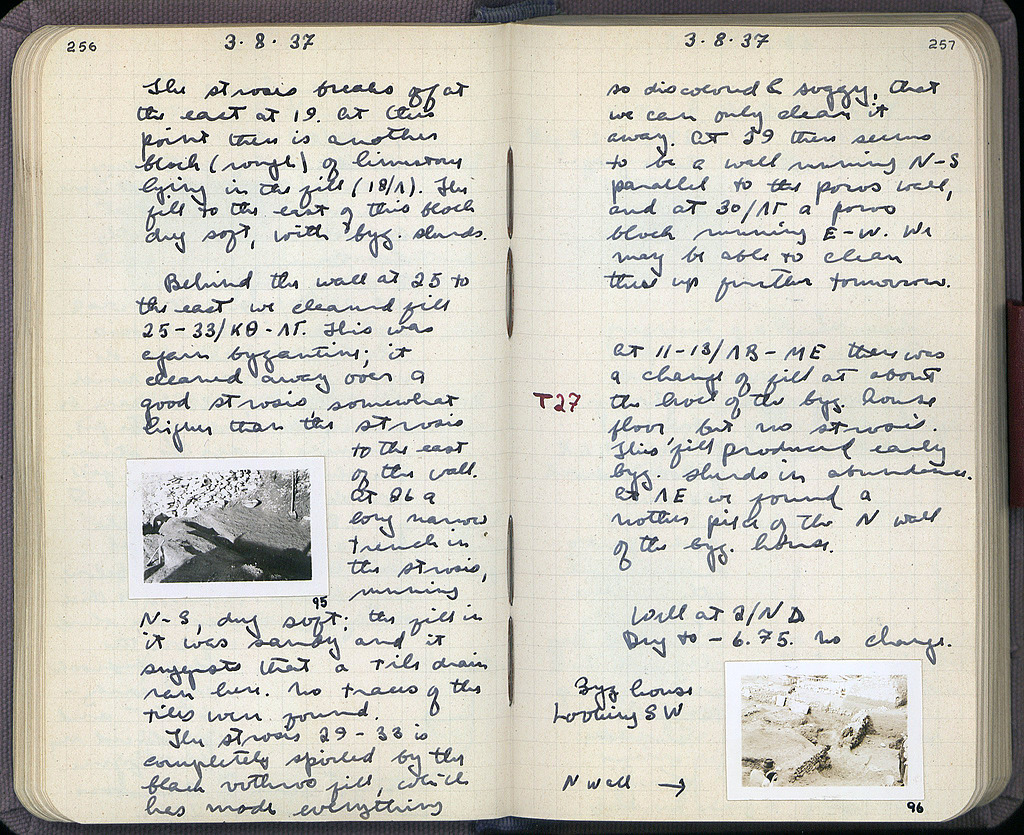 256
3·8·37
The strosis breaks off at
the east at 19. At this
point there is another
block (rough) of limestone
lying in the fill (18/Λ). The
fill to the east of this block
dug soft, with byz. sherds.
Behind the wall at 25 to
the east we cleaned fill
25-33/ΚΘ-ΛΓ. This was
again byzantine; it
cleaned away over a
good strosis, somewhat
higher than the strosis
to the east
of the wall.
At 26 a
long narrow
trench in
the strosis,
running
95
N-S, dug soft; the fill in
it was sandy and it
suggests that a tile drain
ran here. No traces of the
tiles were found.
The strosis 29-33 is
completely spoiled by the
black vothros fill, which
has made everything
3·8·37
257
so discolored & soggy, that
we can only clean it
away. At 39 there seems
to be a wall running N-S
parallel to the poros wall,
and at 30/ΛΓ a poros
block running E-W. We
may be able to clean
this up further tomorrow.
At 11-13/ΛΒ-ΜΕ there was
a change of fill at about
T27 the level of the byz. house
floor, but no strosis.
This fill produced early
byz. sherds in abundance.
At ΛΕ we found a
nother piece of the N wall
of the byz. house.
Well at 2/ΝΔ
Dug to -6.75. No change.
Byz house
Looking SW
N wall →
96